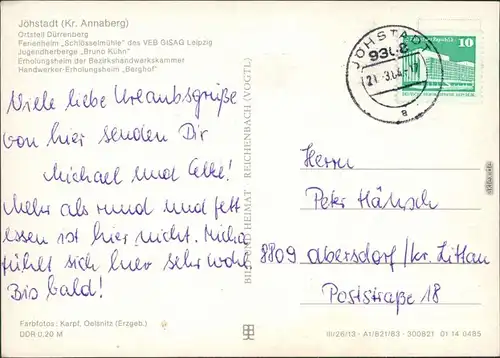 Jöhstadt (Kr. Annaberg)
Ortsteil Dürrenberg
Ferienheim „Schlösselmühle" des VEB GISAG Leipzig
Jugendherberge „Bruno Kühn"
Erholungsheim der Bezirkshandwerkskammer
Handwerker-Erholungsheim „Berghof"
Viele liebe Urlaubsgrüße
von hier senden Dir
Michael und Elke!
Mehr als rund und fett
essen ist hier nicht. Micha
fühlt sich hier sehr wohl
Bis bald!
Farbfotos: Karpf, Oelsnitz (Erzgeb.)
DDR 0,20 M
BILD UND HEIMAT REICHENBACH (VOGTL)
JÖHSTADT
a
10
Herrn
Peter Hänsch
8809 Abersdorf/kr. Zittau
Poststraße 18
III/26/13 - A1/821/83 - 300821 01 14 0485